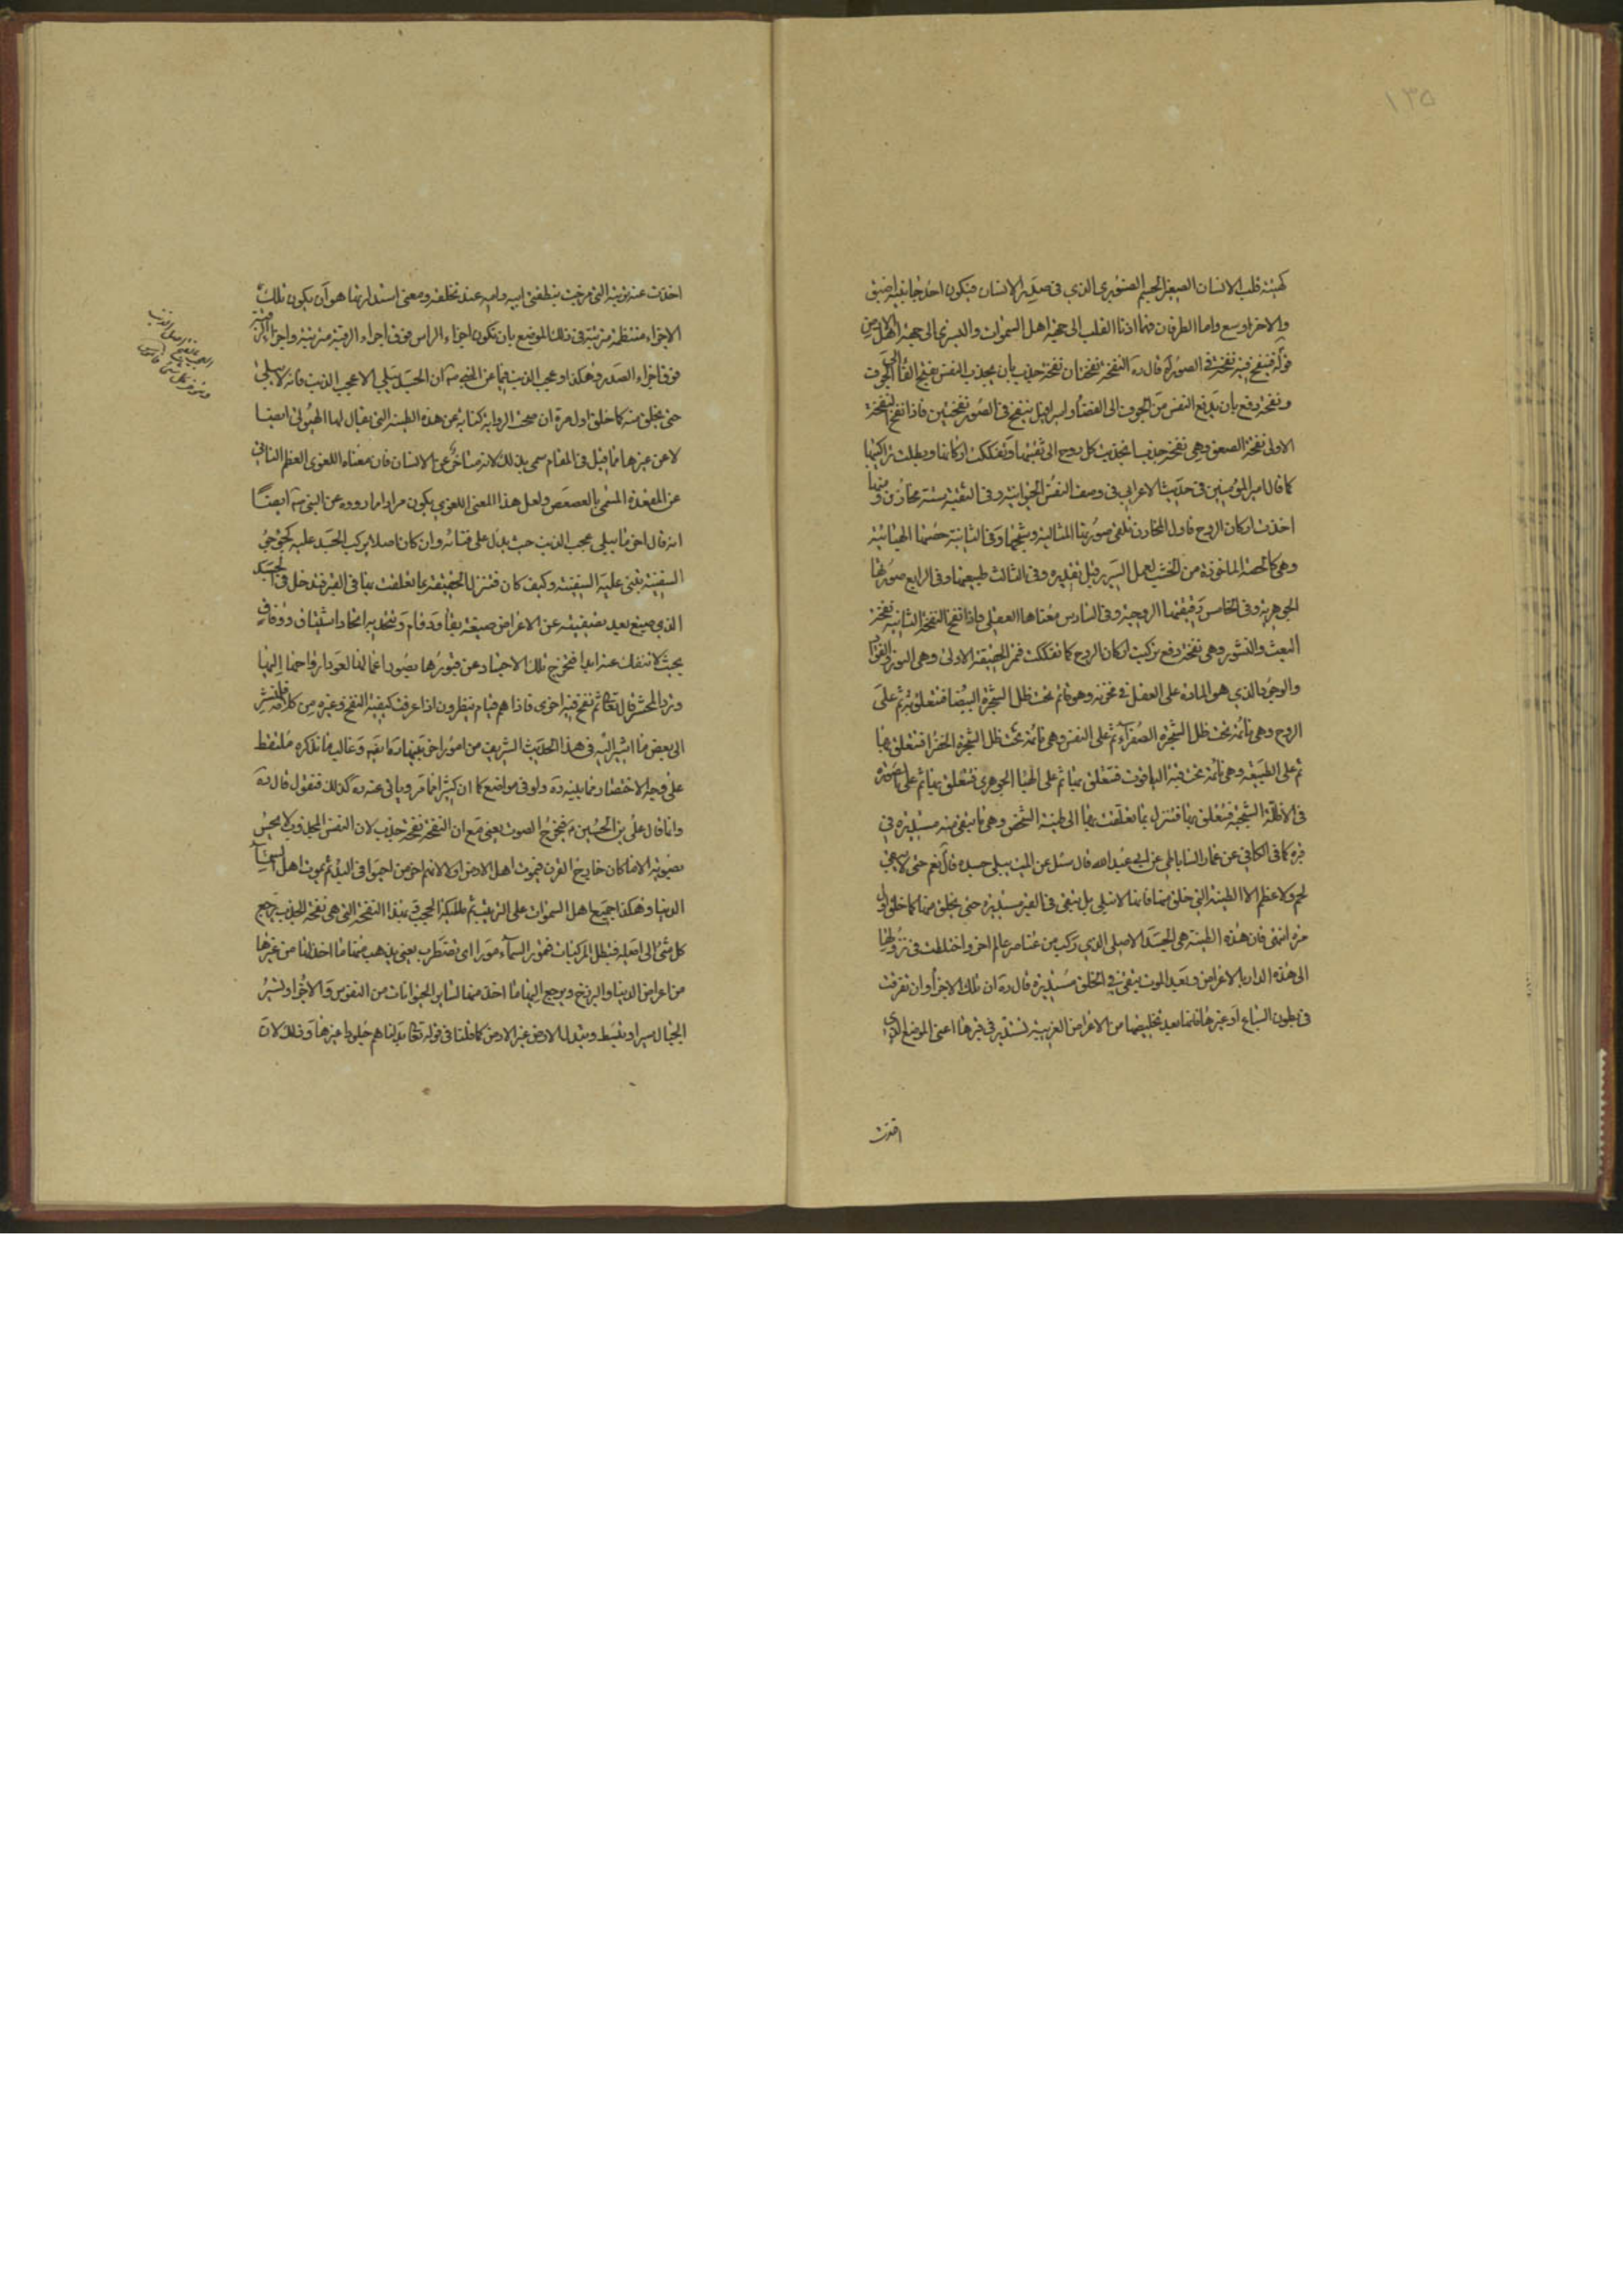 ١٣٥
كهيئة قلب الانسان الصغير الجسم الصنوبري الذي في صدر الانسان فيكون احد جانبيه اضيق
والاخر اوسع واما الطرفان فهما اذنا القلب الى جهة اهل السموات والعبرى الى جهة اهل الارض
قوله فينفخ فيه نفخة في الصور اه قال ره النفخة نفختان نفخة جذب بان يجذب النفس بفتح الفا الى الجوف
ونفخة دفع بان يدفع النفس من الجوف الى الفضأ واسرافيل ينفخ في الصور نفختين فاذا نفخ النفخة
الاولى نفخة الصعق وهي نفخة جذب انجذبت كل روح الى ثقبتها وتفككت اركانها وبطلت تراكيبها
كما قال امير المؤمنين في حديث الاعرابي في وصف النفس الحيوانية وفي الثقبة ستة مخازن ومنها
اخذت اركان الروح فاول المخازن تلقى صورتها المثالية وشبحها وفي الثانية حصتها الهبائية
وهي كالحصة الماخوذة من الخشب لعمل السرير قبل تقديره وفي الثالث طبيعتها وفي الرابع صورتها
الجوهرية وفي الخامس رقيقتها الروحية وفي السادس معناها العقلي واذا نفخ النفخة الثانية نفخة
البعث والنشور وهي نفخة دفع تركبت اركان الروح كما تفككت فتمر الحقيقة الاولى وهي النور والفؤاد
والوجود الذي هو المادة على العقل في مخزنه وهو قائم تحت ظل الشجرة البيضا فتتعلق به ثم على
الروح وهي نائمة تحت ظل الشجرة الصفراء ثم على النفس وهي نائمة تحت ظل الشجرة الخضرا فتتعلق بها
ثم على الطبيعة وهي نائمة تحت قبة الياقوت فتتعلق بها ثم على الهبا الجوهري فتتعلق بها ثم على صورته
في الاظلة الشبحية فتتعلق بها فتنزل بما تعلقت بها الى طينة الشخص وهي ما يبقى منه مستديرة في
قبره كما في الكافي عن عمار الساباطي عن ابي عبد الله قال سئل عن الميت يبلى جسده قال نعم حتى لا يبقى
لحم ولا عظم الا الطينة التي خلق منها فانها لا تبلى بل تبقى في القبر مستديرة حتى يخلق منها كما خلق اول
مرة انتهى فان هذه الطينة هي الجسد الاصلي الذي ركب من عناصر عالم اخر واختلطت في نزولها
الى هذه الدار بالاعراض وبعد الموت يبقى في الخلق مستديرة قال ره ان تلك الاجزأ وان تفرقت
في بطون السباع او غيرها فانها بعد تخليصها من الاعراض الغريبة تستدير في قبرها اعني الموضع الذي
اخذت
اخذت عنه تربته التي مرجت بنطفتي ابيه وامه عند تخلقه ومعنى استدارتها هو ان يكون تلك
الاجزاء منتظمة مترتبة في ذلك الموضع بان تكون اجزاء الراس فوق اجزاء الرقبة مترتبة واجزاء الرقبة
فوق اجزاء الصدر وهكذا وعجب الذنب فيما عن النبي ص ان الجسد يبلى الا عجب الذنب فانه لا يبلى
حتى يخلق منه كما خلق اول مرة ان صحت الرواية كناية عن هذه الطينة التي يقال لها الهيولى ايضا
لا عن غيرها مما قيل في المقام سمي بذلك لانه متاخر عن الانسان فان معناه اللغوي العظم الناتي
عن المقعدة المسمى بالعصعص ولعل هذا المعنى اللغوي يكون مرادا مما روده عن النبي ص ايضا
انه قال اخر ما يبلى عجب الذنب حيث يدل على فنائه وان كان اصلا يركب الجسد عليه كجؤجؤ
السفينة يبنى عليه السفينة وكيف كان فتنزل الحقيقة بما تعلقت بها في القبر فتدخل في الجسد
الذي صيغ بعد تصفيته عن الاعراض صيغة بقاء ودوام وتتحد به اتحاد اشتياق ووفاق
بحيث لا تنفك عنه ابدا فتخرج تلك الاجساد عن قبورها بصور اعمالها لعود ارواحها اليها
وترد المحشر قال تعالى ثم نفخ فيه اخرى فاذا هم قيام ينظرون اذا عرفت كيفية النفخ وغيره من كلامه فلنشر
الى بعض ما اشير اليه في هذا الحديث الشريف من امور اخر بقيها رعايتة وغالب ما نذكره ملتقط
على وجه الاختصار مما بينه ره ولو في مواضع كما ان كثيرا مما مر وياتي عنه ره كذلك فنقول قال ره
وانما قال علي بن الحسين ع فيخرج الصوت يعني مع ان النفخة نفخة جذب لان النفس المجذوب لا يحس
بصوته الا ما كان خارج القرن فيموت اهل الارض اولا لانهم اخر من احيوا في البدء ثم يموت اهل السماء
الدنيا وهكذا جميع اهل السموات على الترتيب ثم ملائكة الحجب فبهذا النفخة التي هي نفخة الجذب يرجع
كل شئ الى اصله فتبطل المركبات فتمور السماء مورا اي تضطرب يعني يذهب منها ما اخذ لها من غيرها
من اعراض الدنيا والبرزخ ويرجع اليها ما اخذ منها لساير الحيوانات من النفوس والاجزأ وتسير
الجبال سيرا وتبسط وتبدل الارض غير الارض كما قلنا في قوله تعالى بدلناهم جلودا غيرها وذلك لان